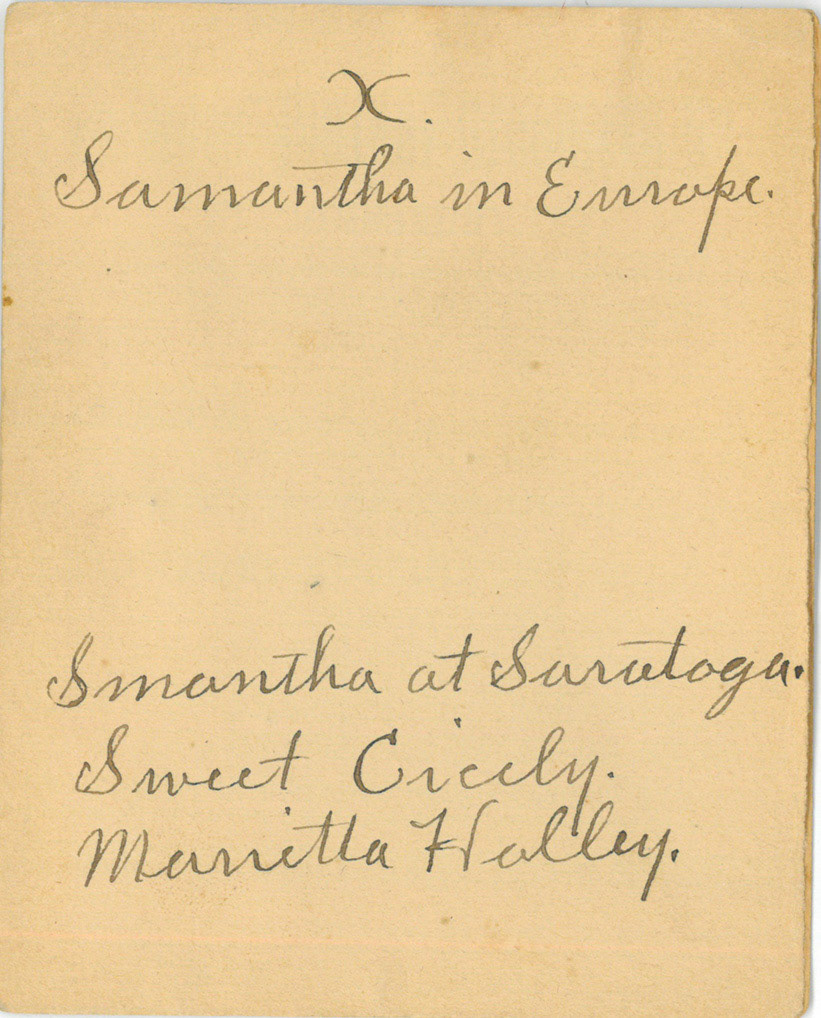 X.
Samantha in Europe.
Smantha at Saratoga.
Sweet Cicely.
Marietta Holley.